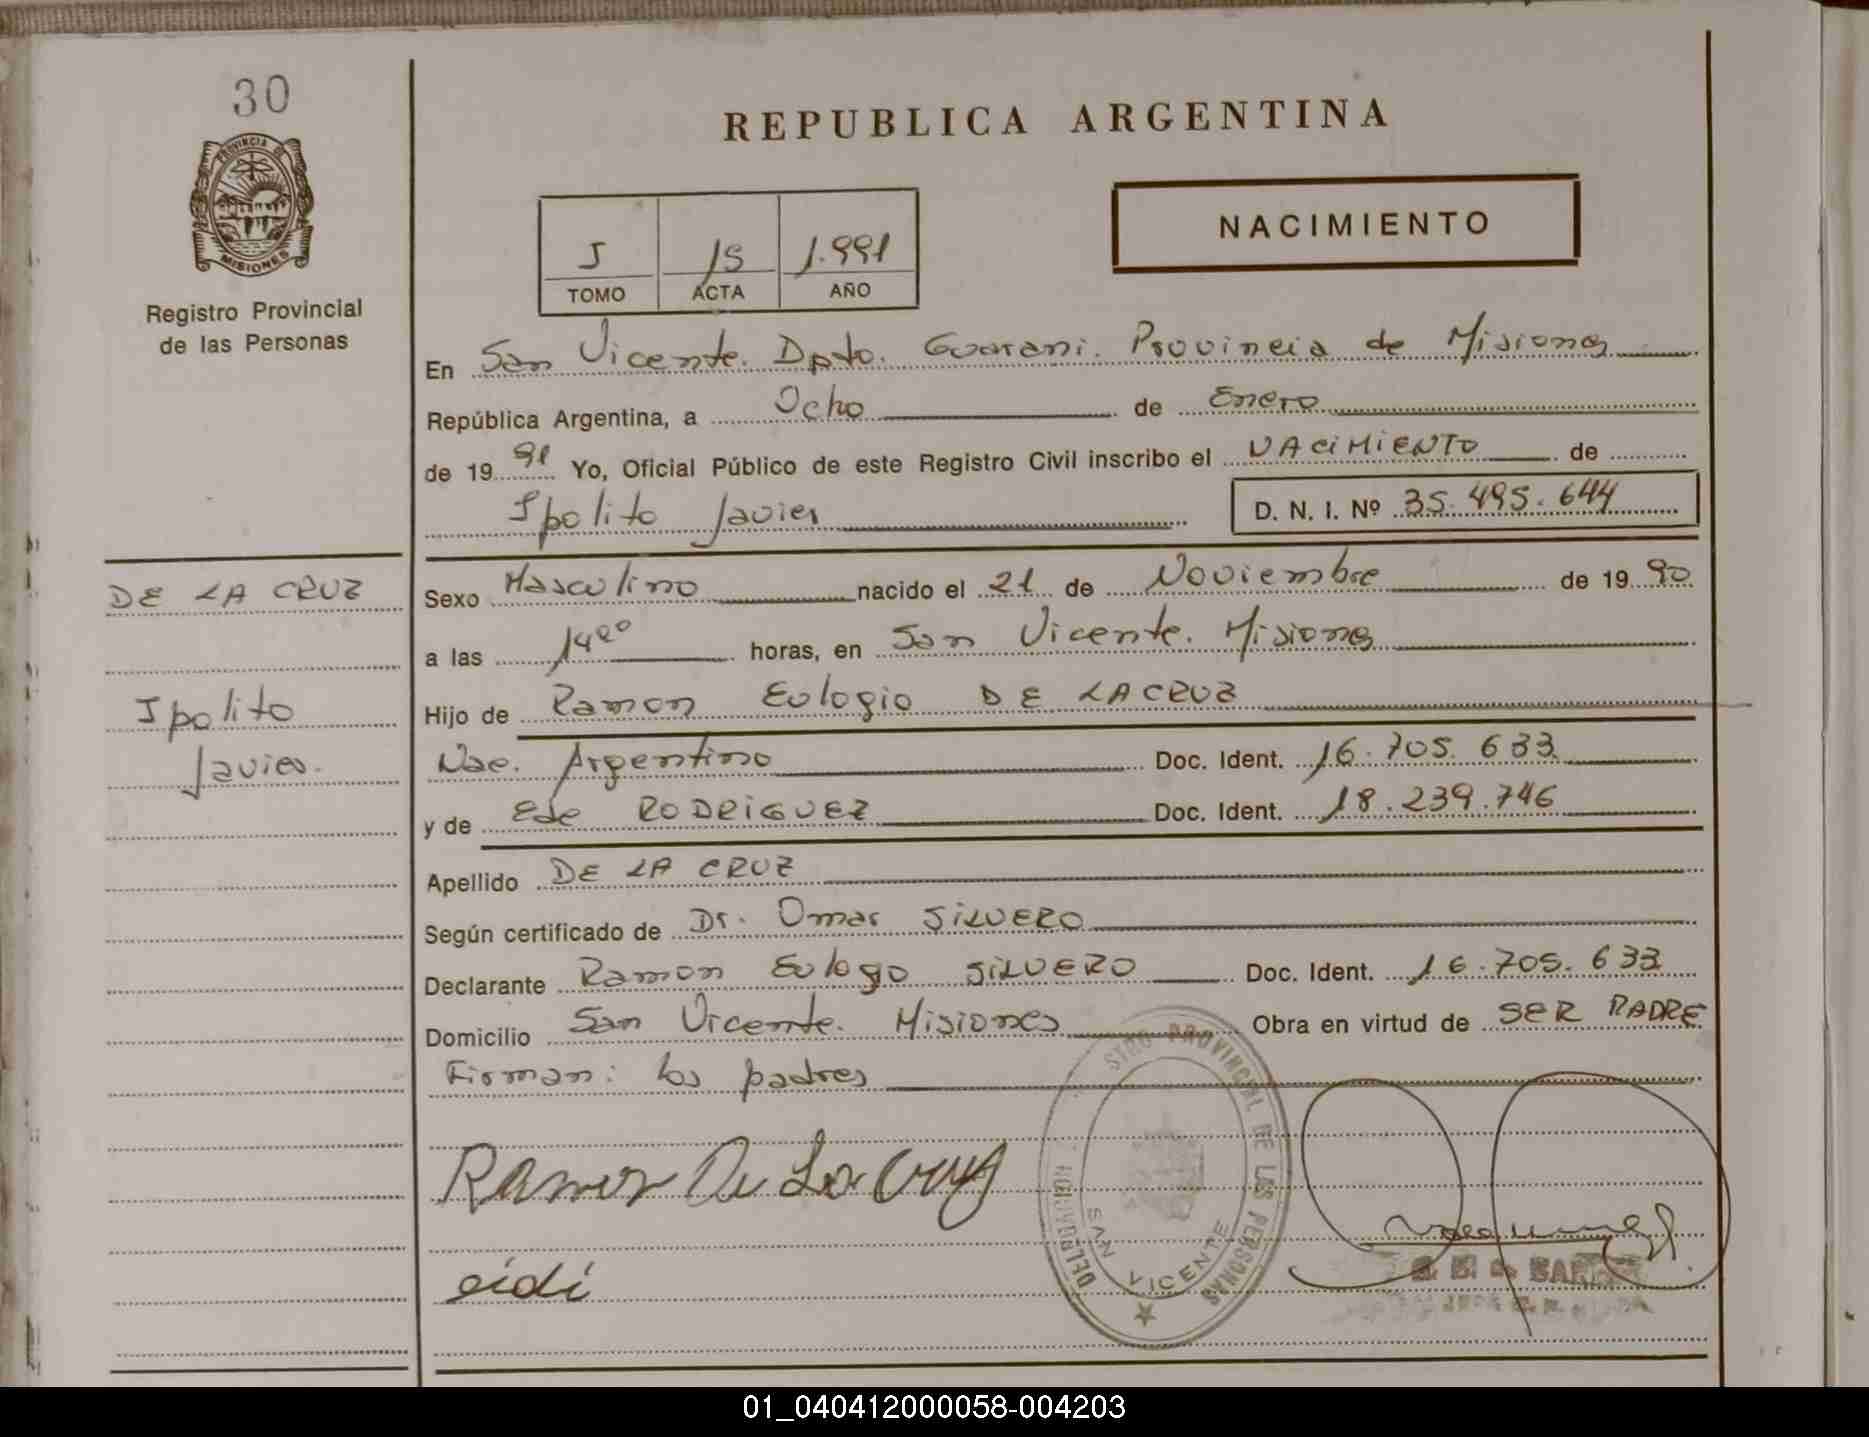 30
PROVINCIA DE
MISIONES
Registro Provincial
de las Personas
REPUBLICA ARGENTINA
NACIMIENTO
I 15 1.991
TOMO ACTA AÑO
En San Vicente. Dpto. Guarani. Provincia de Misiones
República Argentina, a Ocho de Enero
de 1991 Yo, Oficial Público de este Registro Civil inscribo el NACIMIENTO de
Ipolito Javier D. N. I. Nº 35.495.644
DE LA CRUZ
Ipolito
Javier.
Sexo Masculino nacido el 21 de Noviembre de 1990
a las 14⁰⁰ horas, en San Vicente. Misiones
Hijo de Ramon Eulogio DE LA CRUZ
Nac. Argentino Doc. Ident. 16.705.633
y de Ede RODRIGUEZ Doc. Ident. 18.239.746
Apellido DE LA CRUZ
Según certificado de Dr. Omar SILVERO
Declarante Ramon Eulogo SILVERO Doc. Ident. 16.705.633
Domicilio San Vicente. Misiones Obra en virtud de SER PADRE
Firman: los padres
Ramon De La Cruz
eidi
PROVINCIAL DE LAS PERSONAS
DELEGACION
SAN VICENTE
01_040412000058-004203